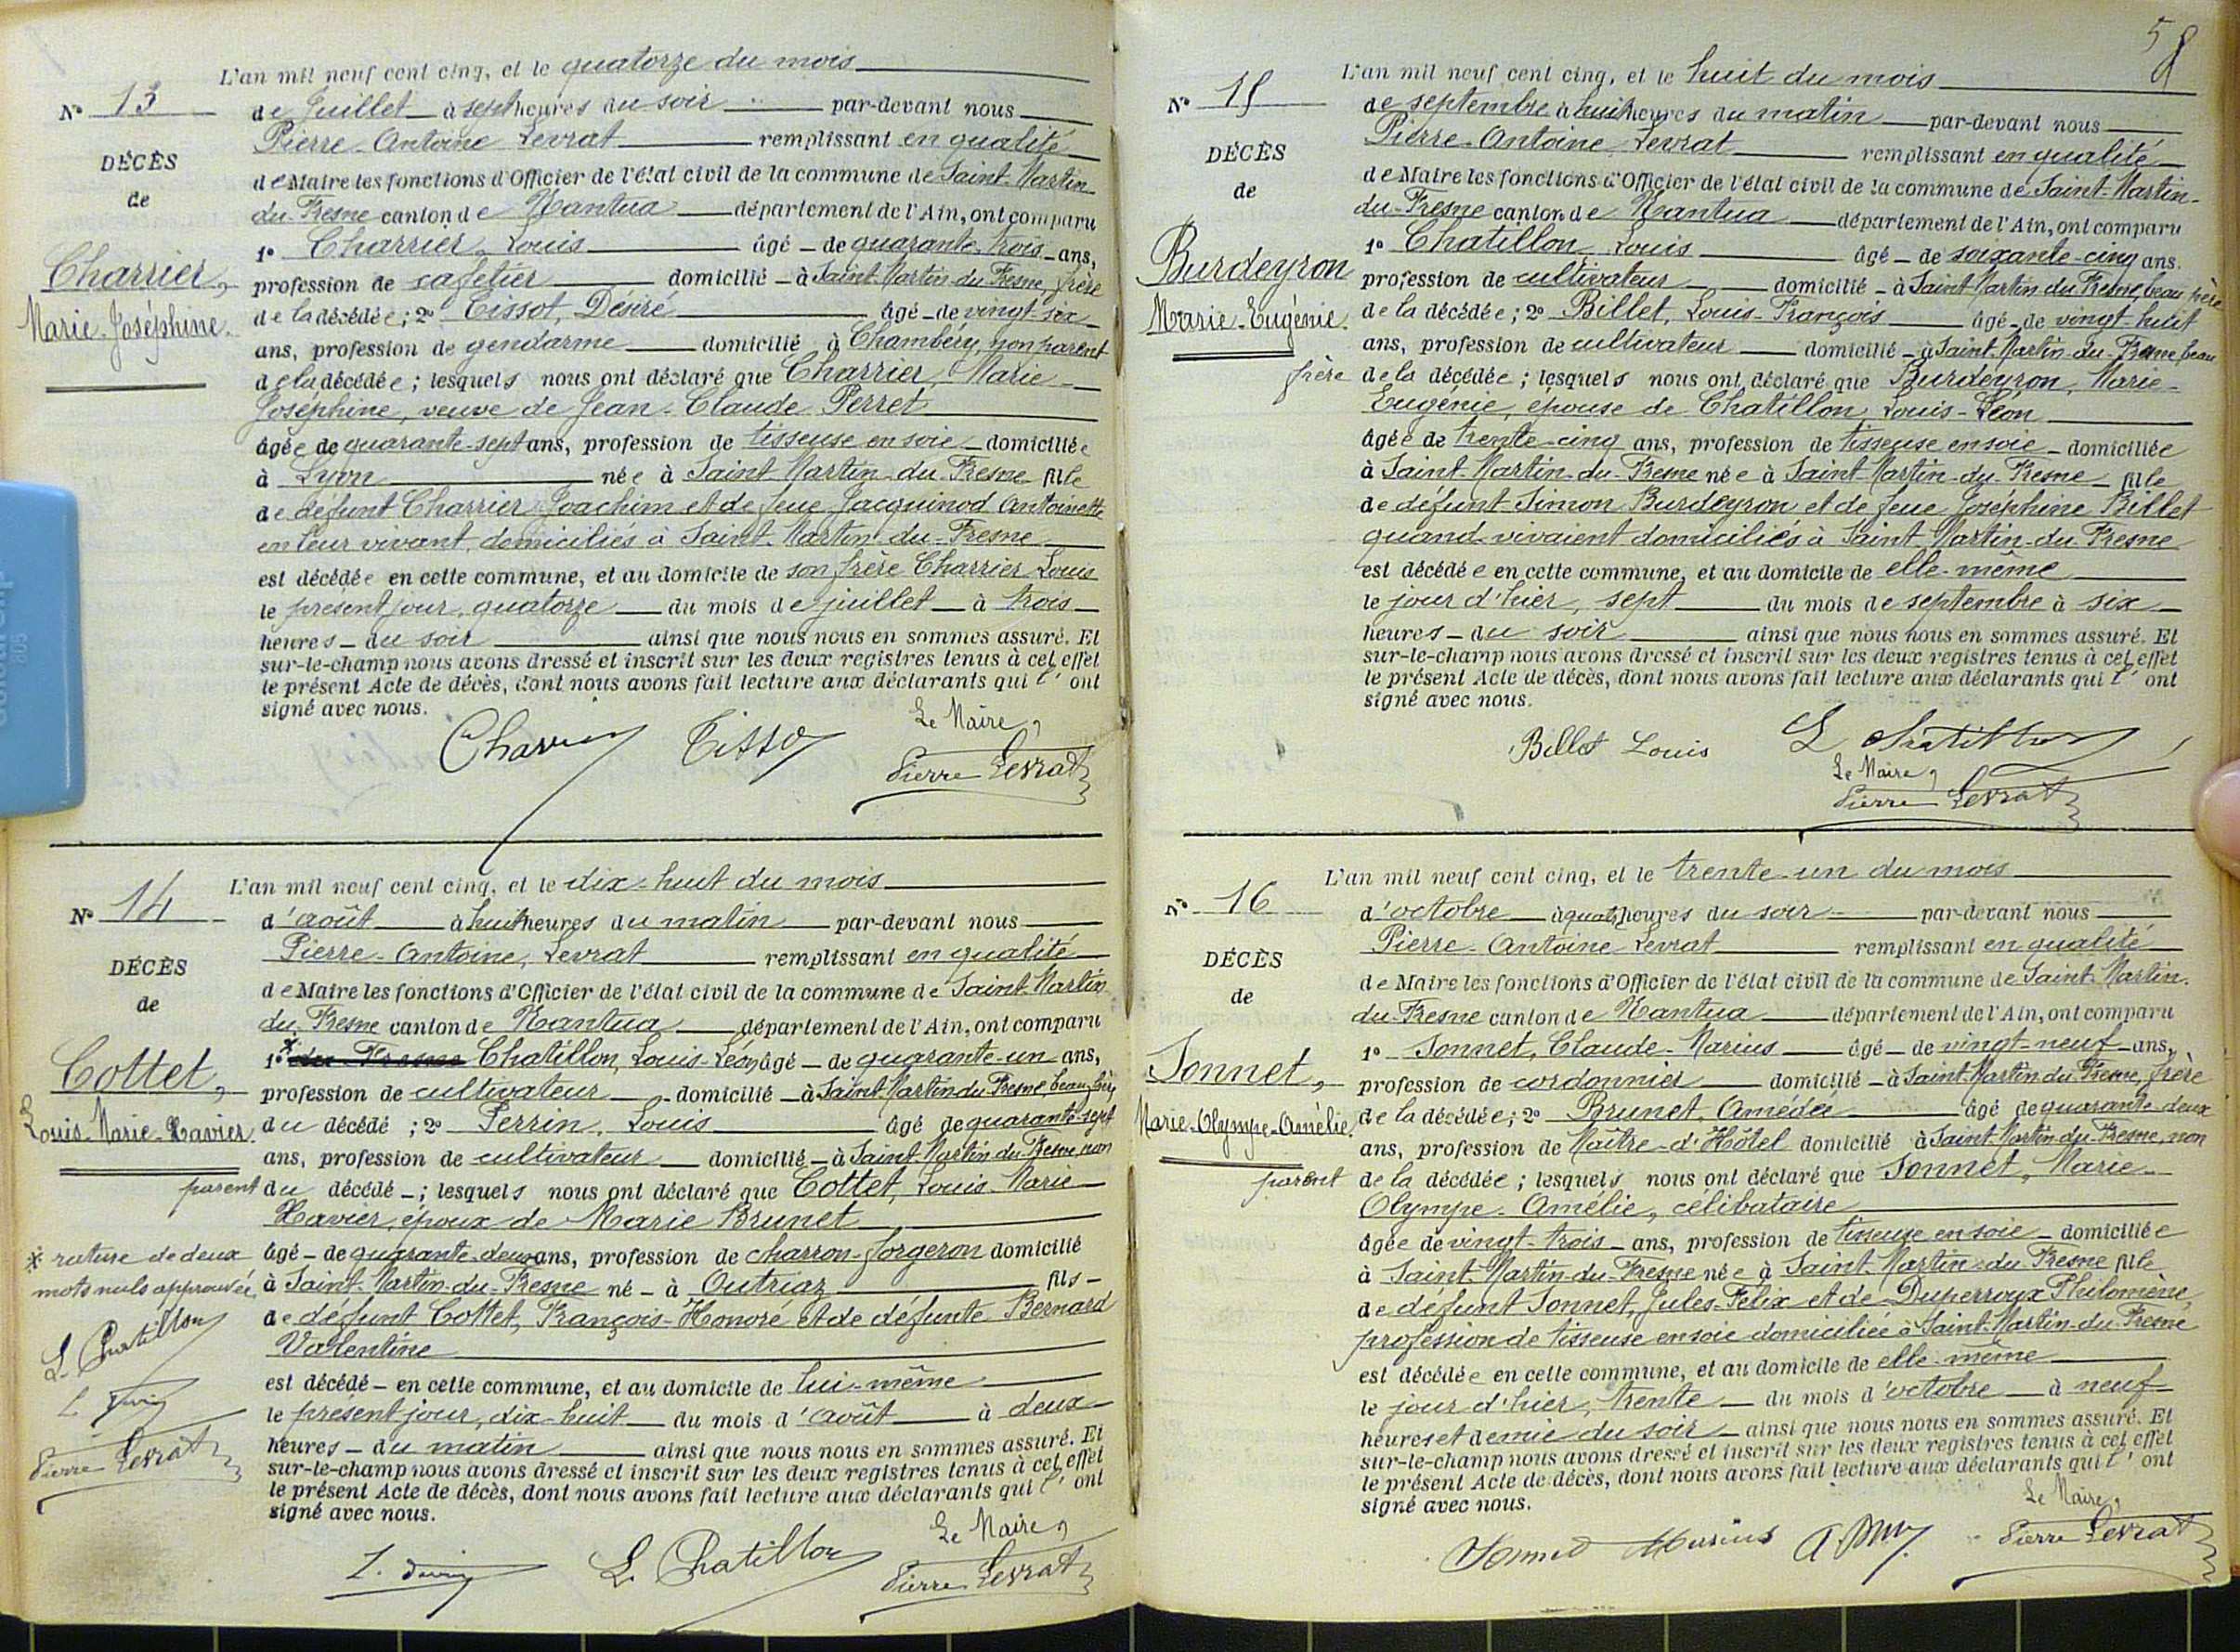 L'an mil neuf cent cinq, et le quatorze du mois
N° 13
de Juillet à sept heures du soir par-devant nous
Pierre-Antoine Levrat remplissant en qualité
DÉCÈS
de Maire les fonctions d'Officier de l'état civil de la commune de Saint-Martin-
de
du-Fresne canton de Nantua département de l'Ain, ont comparu
1° Charrier, Louis âgé de quarante-trois ans,
Charrier,
profession de cafetier domicilié à Saint-Martin-du-Fresne, frère
Marie-Joséphine.
de la décédée ; 2° Tissot, Désiré âgé de vingt-six
ans, profession de gendarme domicilié à Chambéry, non parent
de la décédée ; lesquels nous ont déclaré que Charrier, Marie-
Joséphine, veuve de Jean-Claude Perret
âgée de quarante-sept ans, profession de tisseuse en soie domiciliée
à Lyon née à Saint-Martin-du-Fresne fille
de défunt Charrier Joachim et de feue Jacquinod Antoinette
en leur vivant domiciliés à Saint-Martin-du-Fresne
est décédée en cette commune, et au domicile de son frère Charrier Louis
le présent jour, quatorze du mois de juillet à trois
heures du soir ainsi que nous nous en sommes assuré. Et
sur-le-champ nous avons dressé et inscrit sur les deux registres tenus à cet effet
le présent Acte de décès, dont nous avons fait lecture aux déclarants qui l'ont
signé avec nous.
Le Maire,
Charrier Tissot
Pierre Levrat
L'an mil neuf cent cinq, et le dix-huit du mois
N° 14
d'août à huit heures du matin par-devant nous
Pierre-Antoine, Levrat remplissant en qualité
DÉCÈS
de Maire les fonctions d'Officier de l'état civil de la commune de Saint-Martin
de
du-Fresne canton de Nantua département de l'Ain, ont comparu
1° * du Fresne Chatillon, Louis-Léon âgé de quarante-un ans,
Cottet,
profession de cultivateur domicilié à Saint-Martin-du-Fresne, beau-frère
Louis-Marie-Xavier.
du décédé ; 2° Perrin, Louis âgé de quarante-sept
ans, profession de cultivateur domicilié à Saint-Martin-du-Fresne, non
parent du décédé ; lesquels nous ont déclaré que Cottet, Louis-Marie
Xavier, époux de Marie Brunet
* rature de deux
âgé de quarante-deux ans, profession de charron-forgeron domicilié
mots nuls approuvée.
à Saint-Martin-du-Fresne né à Outriaz fils
de défunt Cottet, François-Honoré et de défunte Bernard
L. Chatillon
Valentine
est décédé en cette commune, et au domicile de lui-même
le présent jour, dix-huit du mois d'août à deux
Pierre Levrat
heures du matin ainsi que nous nous en sommes assuré. Et
sur-le-champ nous avons dressé et inscrit sur les deux registres tenus à cet effet
le présent Acte de décès, dont nous avons fait lecture aux déclarants qui l'ont
signé avec nous.
Le Maire,
L. Chatillon
Pierre Levrat
58
L'an mil neuf cent cinq, et le huit du mois
N° 15
de septembre à huit heures du matin par-devant nous
Pierre-Antoine Levrat remplissant en qualité
DÉCÈS
de Maire les fonctions d'Officier de l'état civil de la commune de Saint-Martin-
de
du-Fresne canton de Nantua département de l'Ain, ont comparu
1° Chatillon, Louis âgé de soixante-cinq ans.
Burdeyron
profession de cultivateur domicilié à Saint-Martin-du-Fresne, beau père
Marie-Eugénie.
de la décédée ; 2° Billet, Louis-François âgé de vingt-huit
ans, profession de cultivateur domicilié à Saint-Martin-du-Fresne, beau
frère de la décédée ; lesquels nous ont déclaré que Burdeyron, Marie-
Eugénie, épouse de Chatillon, Louis-Léon
âgée de trente-cinq ans, profession de tisseuse en soie domiciliée
à Saint-Martin-du-Fresne née à Saint-Martin-du-Fresne fille
de défunt Simon Burdeyron et de feue Joséphine Billet
quand vivaient domiciliés à Saint-Martin-du-Fresne
est décédée en cette commune, et au domicile de elle-même
le jour d'hier, sept du mois de septembre à six
heures du soir ainsi que nous nous en sommes assuré. Et
sur-le-champ nous avons dressé et inscrit sur les deux registres tenus à cet effet
le présent Acte de décès, dont nous avons fait lecture aux déclarants qui l'ont
signé avec nous.
Billet Louis L Chatillon
Le Maire,
Pierre Levrat
L'an mil neuf cent cinq, et le trente-un du mois
N° 16
d'octobre à quatre heures du soir par-devant nous
Pierre-Antoine Levrat remplissant en qualité
DÉCÈS
de Maire les fonctions d'Officier de l'état civil de la commune de Saint-Martin.
de
du-Fresne canton de Nantua département de l'Ain, ont comparu
1° Sonnet, Claude-Marius âgé de vingt-neuf ans,
Sonnet,
profession de cordonnier domicilié à Saint-Martin-du-Fresne, frère
Marie-Olympe-Amélie.
de la décédée ; 2° Brunet, Amédée âgé de quarante-deux
ans, profession de Maître-d'Hôtel domicilié à Saint-Martin-du-Fresne, non
parent de la décédée ; lesquels nous ont déclaré que Sonnet, Marie
Olympe-Amélie, célibataire
âgée de vingt-trois ans, profession de tisseuse en soie domiciliée
à Saint-Martin-du-Fresne née à Saint-Martin-du-Fresne fille
de défunt Sonnet, Jules-Félix et de Duperroux Philomène,
profession de tisseuse en soie domiciliée à Saint-Martin-du-Fresne
est décédée en cette commune, et au domicile de elle-même
le jour d'hier, trente du mois d'octobre à neuf
heures et demie du soir ainsi que nous nous en sommes assuré. Et
sur-le-champ nous avons dressé et inscrit sur les deux registres tenus à cet effet
le présent Acte de décès, dont nous avons fait lecture aux déclarants qui l'ont
signé avec nous.
Le Maire,
Sonnet Marius
Pierre Levrat